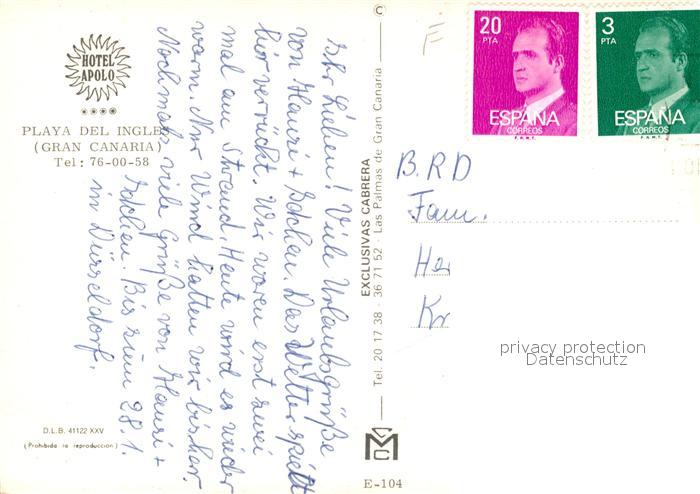 HOTEL
APOLO
PLAYA DEL INGLES
(GRAN CANARIA)
Tel: 76-00-58
Ihr Lieben! Viele Urlaubsgrüße
von Hansi + Gekchen. Das Wetter spielt
hier verrückt. Wir waren erst zwei
mal am Strand. Heute wird es wieder
warm. Nur Wind hatten wir bisher.
Nochmals viele Grüße von Hansi +
Gekchen. Bis zum 28.1.
in Düsseldorf.
D.L.B. 41122 XXV
(Prohibida la reproducción)
C
EXCLUSIVAS CABRERA
Tel. 20 17 38 - 36 71 52 - Las Palmas de Gran Canaria
CMC
E-104
F
20
PTA
ESPAÑA
CORREOS
F.N.M.T.
3
PTA
ESPAÑA
CORREOS
F.N.M.T.
B.R.D
Fam.
Her
Kr
privacy protection
Datenschutz